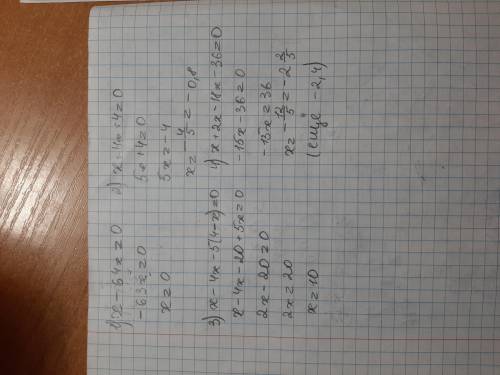 1) x - 64x = 0
-63x = 0
x = 0
2) x - 4x + 4 = 0
5x + 4 = 0
5x = -4
x = -4/5 = -0,8
3) x - 4x - 5(4-x) = 0
x - 4x - 20 + 5x = 0
2x - 20 = 0
2x = 20
x = 10
4) x + 2x - 18x - 36 = 0
-15x - 36 = 0
-15x = 36
x = -12/5 = -2 2/5
(ещё -2,4)